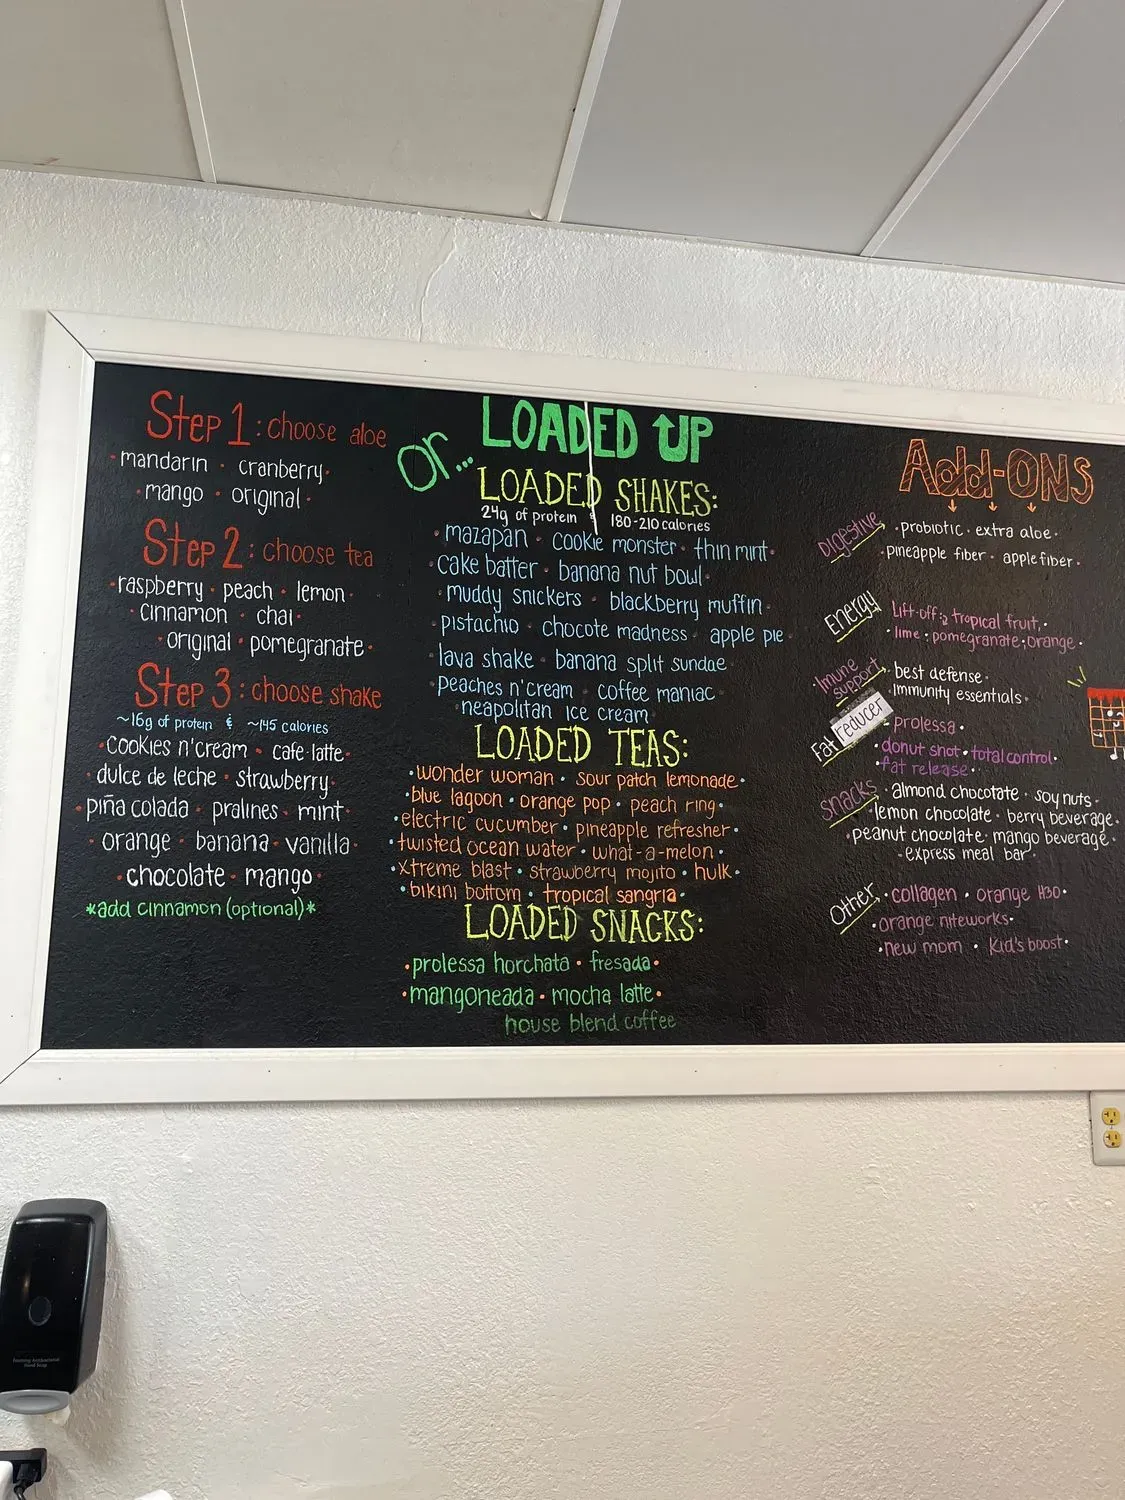 Step 1: choose aloe
mandarin · cranberry·
·mango · original·
Step 2: choose tea
·raspberry· peach · lemon·
·cinnamon · chai·
·original · pomegranate·
Step 3: choose shake
~16g of protein & ~145 calories
·cookies n'cream · cafe·latte·
·dulce de leche · strawberry·
·piña colada · pralines · mint·
·orange · banana · vanilla·
·chocolate · mango·
*add cinnamon (optional)*
or...
LOADED UP
LOADED SHAKES:
24g of protein & 180-210 calories
·mazapan · cookie monster · thin mint·
·cake batter · banana nut bowl·
·muddy snickers · blackberry muffin·
·pistachio · chocote madness · apple pie·
·lava shake · banana split sundae·
·peaches n'cream · coffee maniac·
·neapolitan ice cream·
LOADED TEAS:
·wonder woman · sour patch lemonade·
·blue lagoon · orange pop · peach ring·
·electric cucumber · pineapple refresher·
·twisted ocean water · what-a-melon·
·xtreme blast · strawberry mojito · hulk·
·bikini bottom · tropical sangria·
LOADED SNACKS:
·prolessa horchata · fresada·
·mangoneada · mocha latte·
house blend coffee
Add-ONS
Digestive
·probiotic · extra aloe·
·pineapple fiber · apple fiber·
Energy
Lift-off: tropical fruit,·
·lime; pomegranate; orange·
Imune support
·best defense·
·immunity essentials·
Fat reducer
·prolessa·
·donut shot · total control·
·fat release·
snacks
·almond chocotate · soy nuts·
·lemon chocolate · berry beverage·
·peanut chocolate · mango beverage·
-express meal bar·
Other
·collagen · orange H30·
·orange niteworks·
·new mom · Kid's boost·
Foaming Antibacterial
Hand Soap